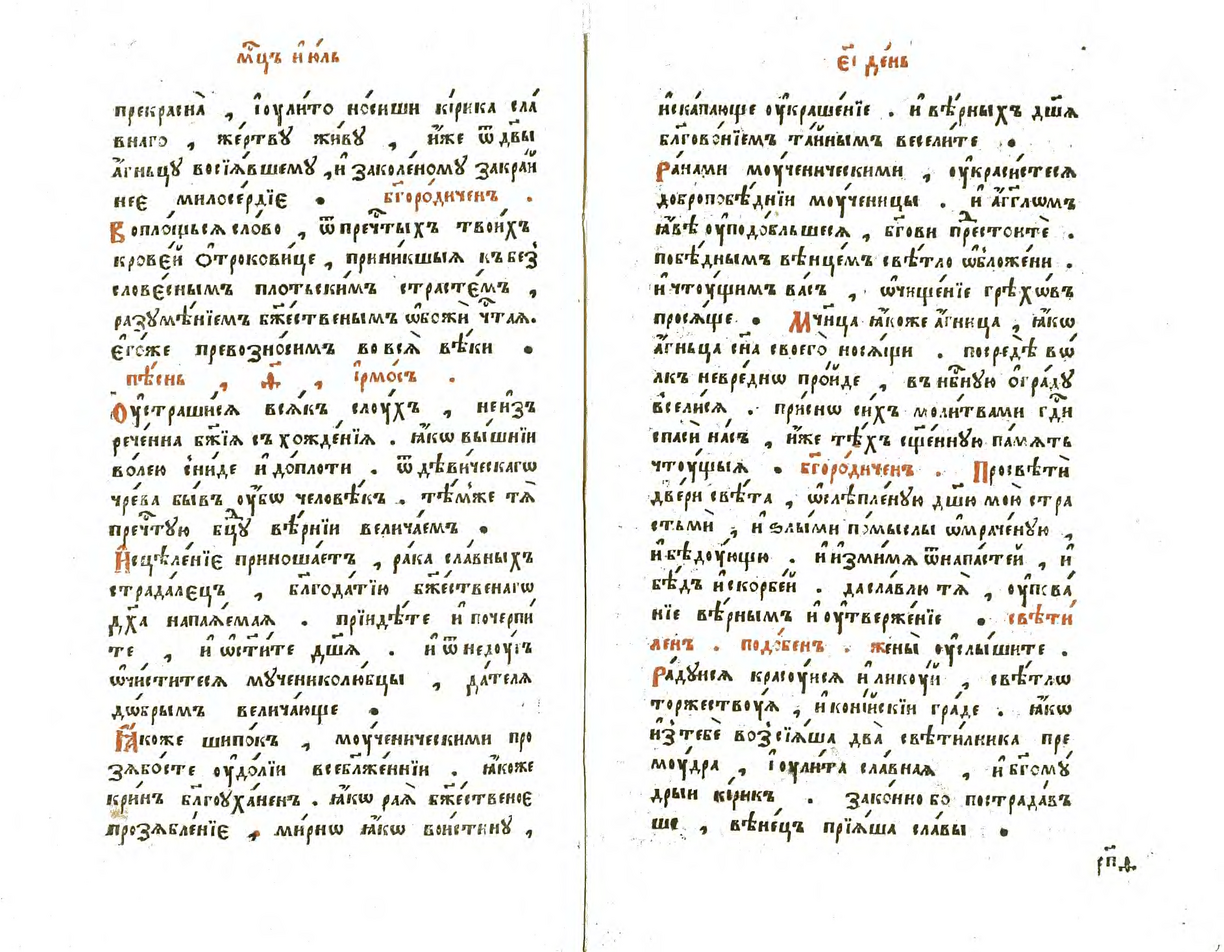 мц҃ъ и҆ю́ль
прекрасна̀ , і҆оули́то но́сиши ки́рика сла́
внаго , же́ртвꙋ жи́вꙋ , и҆́же ѿ дв҃ы
а҆́гньцꙋ восїѧ́вшемꙋ , и҆ заколе́номꙋ закра́й
нее милосе́рдїе • бг҃оро́диченъ .
Вопло́щьсѧ сло́во , ѿ пречⷭ҇тыхъ твои́хъ
крове́й ѻ҆трокови́це , прини́кшыѧ къ без̾
слове́снымъ пло́тьскимъ страсте́мъ ,
разꙋмѣ́нїемъ бж҃е́ственымъ ѡ҆божѝ чⷭ҇таѧ.
є҆го́же превозно́симъ во всѧ̀ вѣ́ки •
пѣ́снь , ѳ҃ , і҆рмо́съ .
Оу҆страши́сѧ всѧ́къ слоу́хъ , неиз̾
рече́нна бж҃їѧ съ хожде́нїѧ . ꙗ҆́кѡ вы́шнїи
во́лею сни́де и҆ до пло́ти . ѿ дѣви́ческагѡ
чре́ва бы́въ оу҆́бѡ человѣ́къ . тѣ́мже тѧ̀
пречⷭ҇тꙋю бц҃ꙋ вѣ́рнїи велича́емъ •
И҆сцѣле́нїе приноша́етъ , ра́ка сла́вныхъ
страда́лецъ , бл҃года́тїю бж҃е́ственагѡ
дх҃а напаѧ́емаѧ . прїидѣ́те и҆ почерпи́
те , и҆ ѡ҆сти́те дш҃ѧ . и҆ ѿ недоу́гъ
ѡ҆чи́ститесѧ мꙋчениколю́бцы , да́телѧ
дѡ́брымъ велича́юще •
Ꙗ҆́коже шипо́къ , моу́ченическими про
зѧбо́сте оу҆до́лїи всебл҃же́ннїи . ꙗ҆́коже
кри́нъ бл҃гоуха́ненъ . ꙗ҆́кѡ ра́ѧ бж҃е́ственое
прозѧбле́нїе , ми́рнѡ ꙗ҆́кѡ вои́стинꙋ ,
є҃і де́нь
и҆ска́пающе оу҆краше́нїе . и҆ вѣ́рныхъ дш҃ѧ
бл҃гово́нїемъ та́йнымъ весели́те •
Ра́нами моу́ченическими , оу҆краси́стесѧ
добропобѣ́днїи моу́ченицы . и҆ а҆́гг҃лѡмъ
ꙗ҆́вѣ оу҆подо́бльшесѧ , бг҃ови престоитѐ .
побѣ́днымъ вѣнце́мъ свѣ́тло ѡ҆бложе́ни .
и҆ чтоу́щимъ ва́съ , ѡ҆чище́нїе грѣхѡ́въ
просѧ́ще • Мч҃ница ꙗ҆́коже а҆́гница , ꙗ҆́кѡ
а҆́гньца сн҃а своего̀ носѧ́щи . посредѣ̀ вѡ
лкъ невре́днѡ про́йде , въ нбⷭ҇нꙋю о҆гра́дꙋ
всели́сѧ . при́снѡ си́хъ моли́твами гдⷭ҇и
спаси́ на́съ , и҆́же тѣ́хъ сщ҃е́ннꙋю па́мѧть
чтоу́щыѧ • бг҃оро́диченъ . Просвѣти̂
две́ри свѣ́та , ѡ҆слѣпле́нꙋю дш҃ю мою̀ стра
стьмѝ , и҆ ѕлы́ми по́мыслы ѡ҆мраче́нꙋю ,
и҆ бѣ́доующю . и҆ и҆зми́мѧ ѿ напа́стей , и҆
бѣ́дъ и҆ скорбе́й . да сла́влю тѧ̀ , оу҆пова́
нїе вѣ́рнымъ и҆ оу҆твержє́нїе • свѣти́
ленъ . подо́бенъ . жены̀ оу҆слы́шите .
Ра́дꙋисѧ красоу́исѧ и҆ ликоу́й , свѣ́тлѡ
торжествоу́ѧ , и҆кони́йскїи гра́де . ꙗ҆́кѡ
и҆з̾ тебѐ воз̾сїѧ́ша два̀ свѣти́лника пре
моу́дра , і҆оули́та сла́внаѧ , и҆ бг҃омꙋ́
дрыи ки́рикъ . зако́нно бо пострада́въ
ше , вѣне́цъ прїѧ́ша сла́вы •
рп҃ѳ